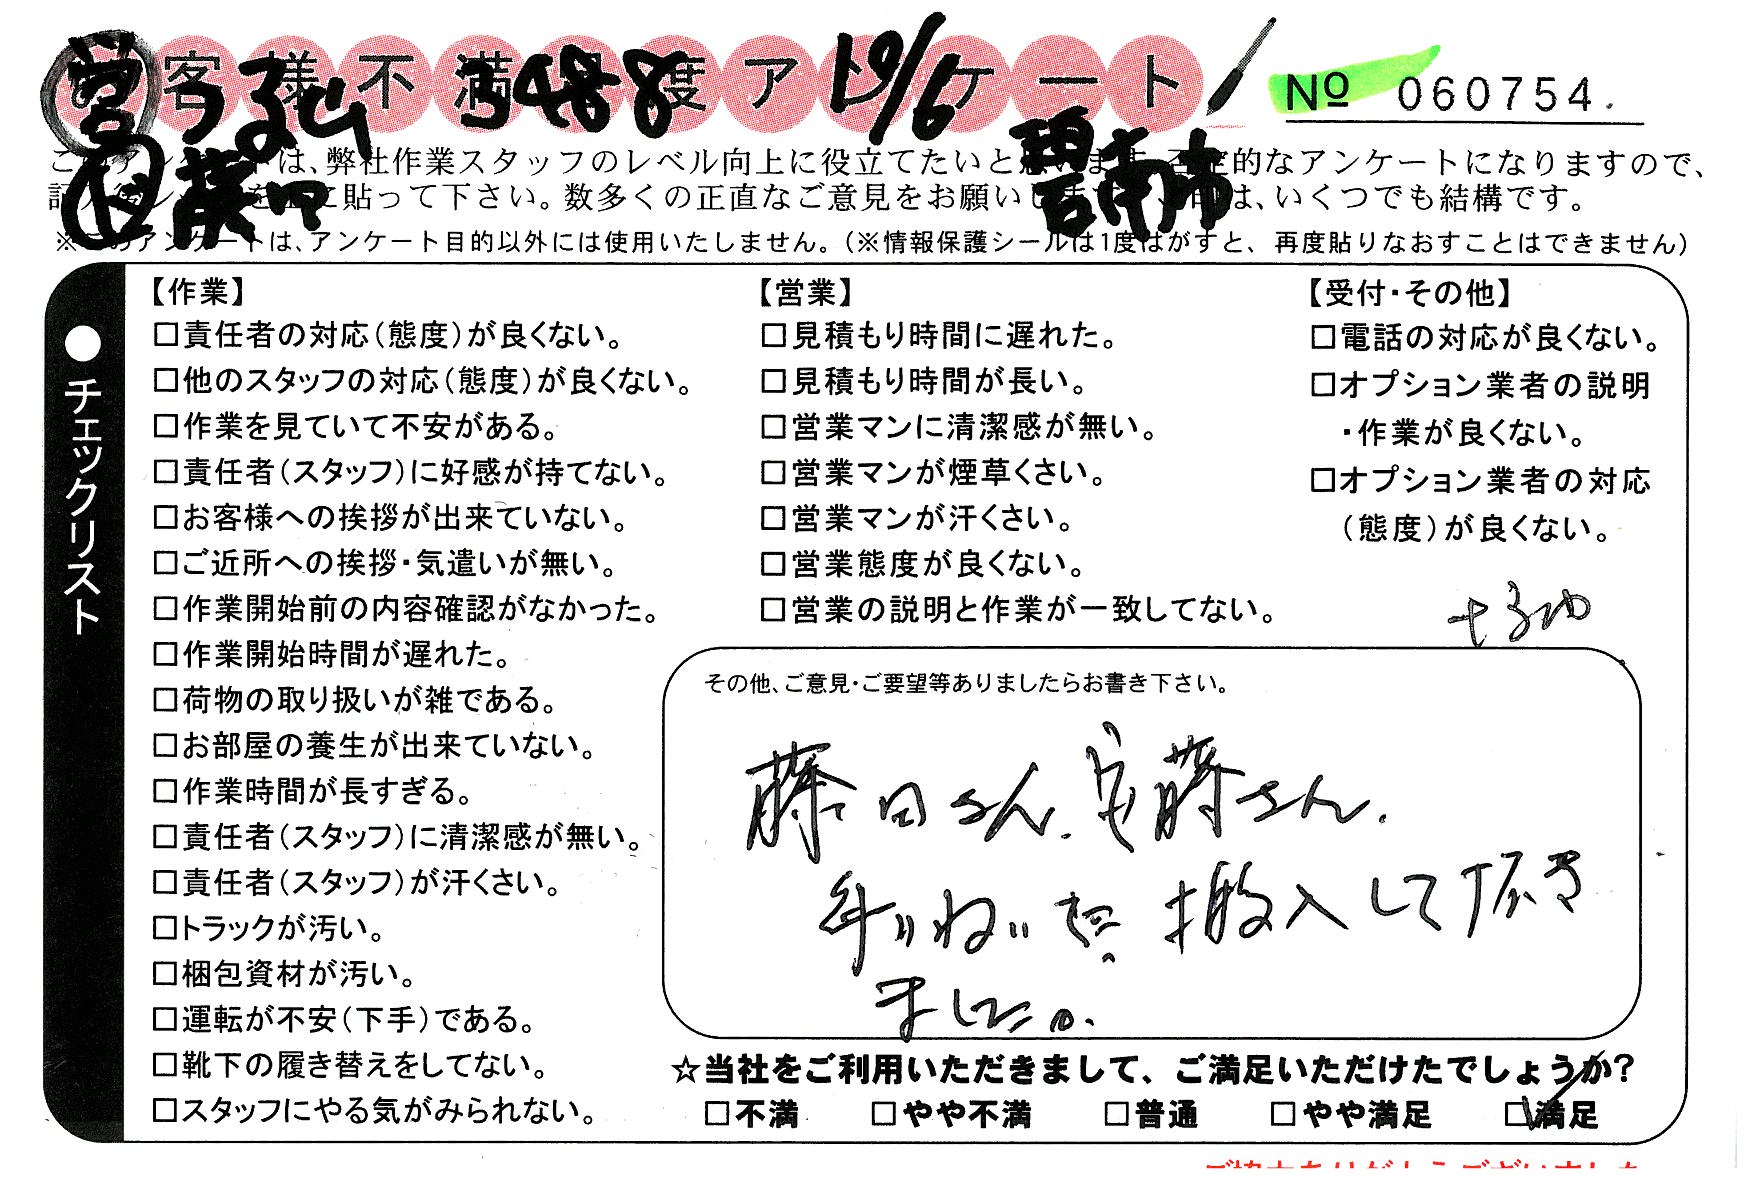 客様不満度アンケート
№ 060754
3488 10/6
碧南市
は、弊社作業スタッフのレベル向上に役立てたいと思います。否定的なアンケートになりますので、
に貼って下さい。数多くの正直なご意見をお願いします。は、いくつでも結構です。
※このアンケートは、アンケート目的以外には使用いたしません。(※情報保護シールは1度はがすと、再度貼りなおすことはできません)
●チェックリスト
【作業】
□責任者の対応(態度)が良くない。
□他のスタッフの対応(態度)が良くない。
□作業を見ていて不安がある。
□責任者(スタッフ)に好感が持てない。
□お客様への挨拶が出来ていない。
□ご近所への挨拶・気遣いが無い。
□作業開始前の内容確認がなかった。
□作業開始時間が遅れた。
□荷物の取り扱いが雑である。
□お部屋の養生が出来ていない。
□作業時間が長すぎる。
□責任者(スタッフ)に清潔感が無い。
□責任者(スタッフ)が汗くさい。
□トラックが汚い。
□梱包資材が汚い。
□運転が不安(下手)である。
□靴下の履き替えをしてない。
□スタッフにやる気がみられない。
【営業】
□見積もり時間に遅れた。
□見積もり時間が長い。
□営業マンに清潔感が無い。
□営業マンが煙草くさい。
□営業マンが汗くさい。
□営業態度が良くない。
□営業の説明と作業が一致してない。
【受付・その他】
□電話の対応が良くない。
□オプション業者の説明
・作業が良くない。
□オプション業者の対応
(態度)が良くない。
その他、ご意見・ご要望等ありましたらお書き下さい。
藤田さん、安藤さん、
搬入して頂き
ました。
☆当社をご利用いただきまして、ご満足いただけたでしょうか?
□不満 □やや不満 □普通 □やや満足 □満足
ご協力ありがとうございました